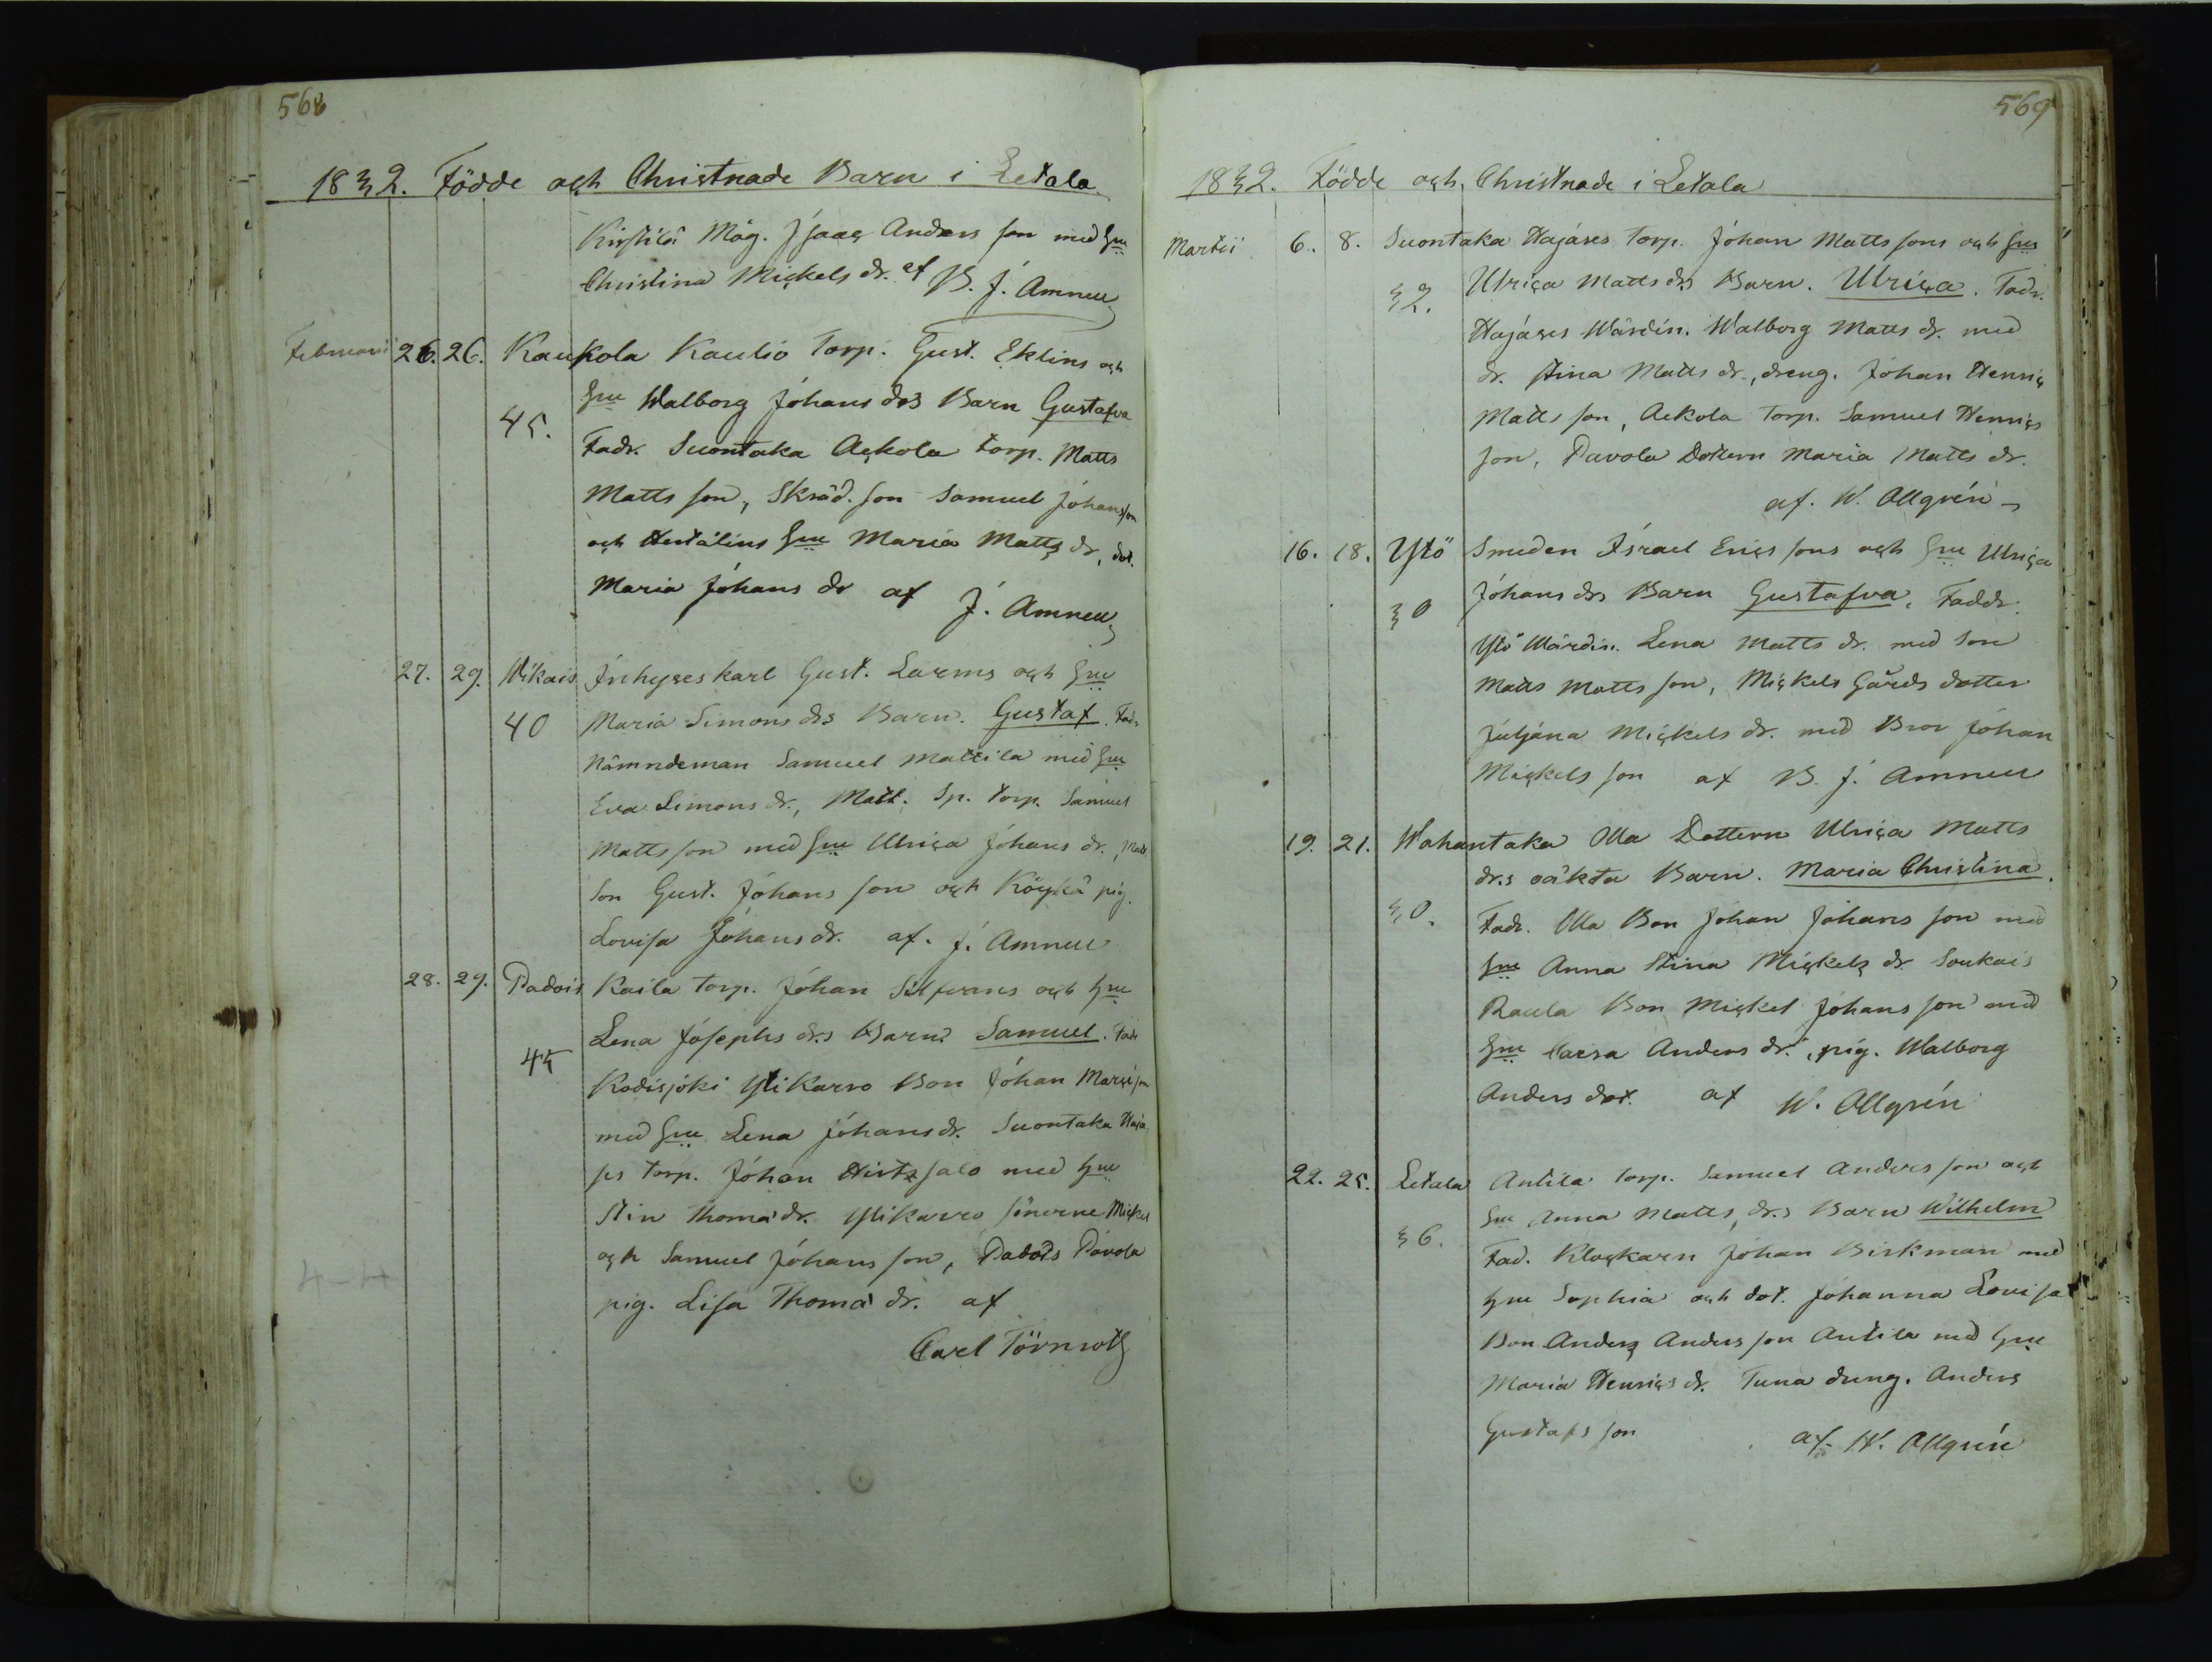 568
1832. Födde och Christnade Barn i Letala
Kirstilä Måg. Isaac Anders son med hu
Christina Mickels dr. af B. J. Amnell
Februarii 26. 26. Kaukola Kaulio Torp. Gust. Eklins och
hu Walborg Johans drs Barn Gustafva
45.
Fadr. Suontaka Ackola torp. Matts
Matts son, Skräd. son Samuel Johansson
och hu Maria Matts dr, dot.
Maria Johans dr af J. Amnell
27. 29. Wikais Inhyseskarl Gust. Larms och hu
40 Maria Simons drs Barn. Gustaf. Fadr
Nämndeman Samuel Mattila med hu
Eva Simons dr., Matt. Sp. torp. Samuel
Matts son med hu Ulrica Johans dr., Matt.
Son Gust. Johans son och Köykä pig.
Lovisa Johans dr. af. J. Amnell
28. 29. Padois Kaila torp. Johan Silfvans och hu
Lena Josephs drs Barn Samuel. Fadr
45
Kodisjoki Ylikarro Bon Johan
med hu Lena Johans dr. Suontaka Haja
ses torp. Johan Hirtesalo med hu
Stin Thomä dr. Ylikarro sönerne Mickel
och Samuel Johans son, Padois Pavola
pig. Lisa Thomä dr. af
Carl Törnroth
569
1832. Födde och Christnade i Letala
Martii 6. 8. Suontaka Hajases torp. Johan Matts sons och hus
Ulrica Matts drs Barn. Ulrica. Fadr.
32.
Hajases Wärdin. Walborg Matts dr. med
dr. Stina Matts dr., dreng. Johan Henric
Matts son, Ackola torp. Samuel Henrics
son, Pavola Dottern Maria Matts dr.
af. W. Allgrén
16. 18. Ytö Smeden Israel Erics sons och hu Ulrica
Johans drs Barn Gustafva, Faddr.
30
Ytö Wärdin. Lena Matts dr. med son
Matts Matts son, Mickels Gårds dotter
Juljana Mickels dr. med Bror Johan
Mickels son af B. J. Amnell
19. 21. Wahantaka Olla Dottern Ulrica Matts
drs oäkta Barn. Maria Christina.
30.
Fadr. Olla Bon Johan Johans son med
hu Anna Stina Mickels dr Soukais
Raula Bon Mickel Johans son med
hu Caisa Anders dr., pig. Walborg
Anders dot. af W. Allgrén
22. 25. Letala Antila torp. Samuel Anders son och
hu Anna Matts drs Barn Wilhelm
36.
Fad. Klockarn Johan Birkman med
hu Sophia och dot. Johanna Lovisa
Bon Anders Anders son Antila med hu
Maria Henrics dr. Tuna dreng. Anders
Gustafs son af. W. Allgrén